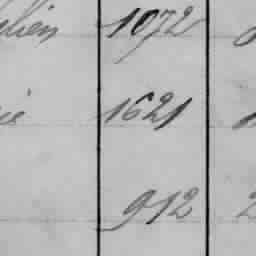 lien 1072
ie 1621
912 2